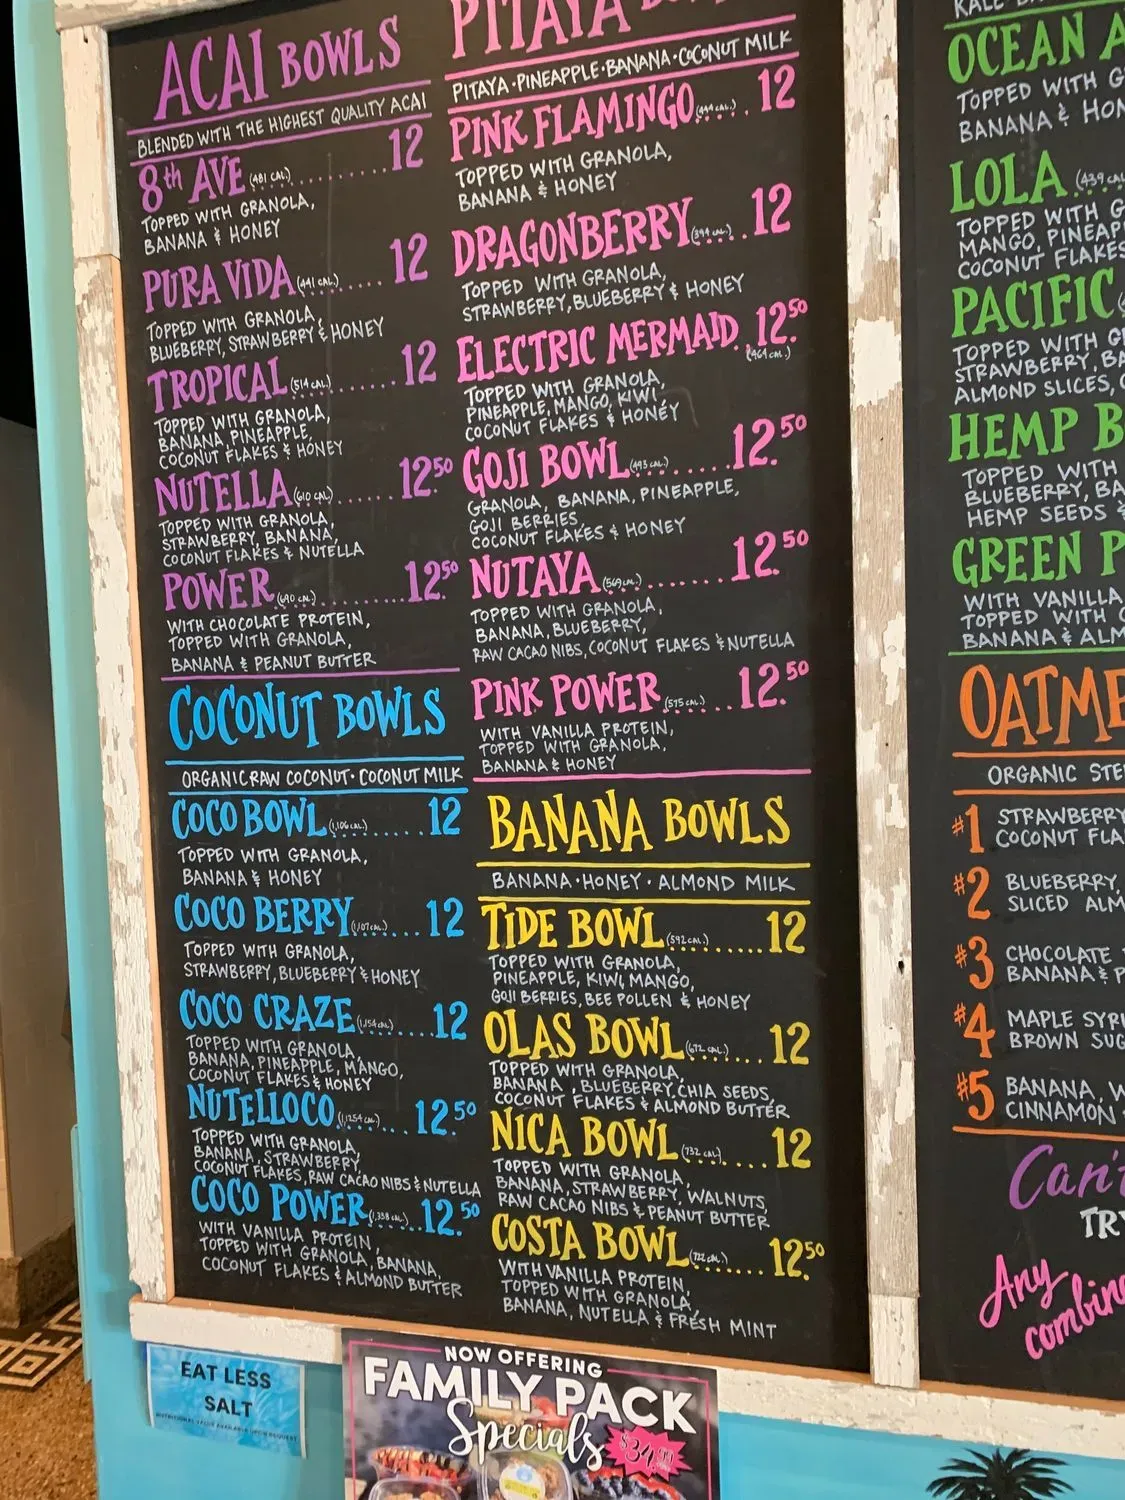 ACAI BOWLS
BLENDED WITH THE HIGHEST QUALITY ACAI
8th AVE (481 CAL.) .......... 12
TOPPED WITH GRANOLA,
BANANA & HONEY
PURA VIDA (441 CAL.) ....... 12
TOPPED WITH GRANOLA,
BLUEBERRY, STRAWBERRY & HONEY
TROPICAL (514 CAL.) ....... 12
TOPPED WITH GRANOLA,
BANANA, PINEAPPLE,
COCONUT FLAKES & HONEY
NUTELLA (610 CAL) ...... 12.50
TOPPED WITH GRANOLA,
STRAWBERRY, BANANA,
COCONUT FLAKES & NUTELLA
POWER (690 CAL.) .......... 12.50
WITH CHOCOLATE PROTEIN,
TOPPED WITH GRANOLA,
BANANA & PEANUT BUTTER
COCONUT BOWLS
ORGANIC RAW COCONUT · COCONUT MILK
COCO BOWL (1,106 CAL.) ...... 12
TOPPED WITH GRANOLA,
BANANA & HONEY
COCO BERRY (1,107 CAL.) ... 12
TOPPED WITH GRANOLA,
STRAWBERRY, BLUEBERRY & HONEY
COCO CRAZE (1,154 CAL.) .... 12
TOPPED WITH GRANOLA,
BANANA, PINEAPPLE, MANGO,
COCONUT FLAKES & HONEY
NUTELLOCO (1,254 CAL.) ... 12.50
TOPPED WITH GRANOLA,
BANANA, STRAWBERRY,
COCONUT FLAKES, RAW CACAO NIBS & NUTELLA
COCO POWER (1,338 CAL.) ... 12.50
WITH VANILLA PROTEIN,
TOPPED WITH GRANOLA, BANANA,
COCONUT FLAKES & ALMOND BUTTER
PITAYA
PITAYA · PINEAPPLE · BANANA · COCONUT MILK
PINK FLAMINGO (444 CAL.) .... 12
TOPPED WITH GRANOLA,
BANANA & HONEY
DRAGONBERRY (394 CAL.) .. 12
TOPPED WITH GRANOLA,
STRAWBERRY, BLUEBERRY & HONEY
ELECTRIC MERMAID 12.50
(464 CAL.)
TOPPED WITH GRANOLA,
PINEAPPLE, MANGO, KIWI,
COCONUT FLAKES & HONEY
GOJI BOWL (493 CAL.) ....... 12.50
GRANOLA, BANANA, PINEAPPLE,
GOJI BERRIES,
COCONUT FLAKES & HONEY
NUTAYA (569 CAL.) ....... 12.50
TOPPED WITH GRANOLA,
BANANA, BLUEBERRY,
RAW CACAO NIBS, COCONUT FLAKES & NUTELLA
PINK POWER (575 CAL.) ... 12.50
WITH VANILLA PROTEIN,
TOPPED WITH GRANOLA,
BANANA & HONEY
BANANA BOWLS
BANANA · HONEY · ALMOND MILK
TIDE BOWL (592 CAL.) ...... 12
TOPPED WITH GRANOLA,
PINEAPPLE, KIWI, MANGO,
GOJI BERRIES, BEE POLLEN & HONEY
OLAS BOWL (672 CAL.) ... 12
TOPPED WITH GRANOLA,
BANANA, BLUEBERRY, CHIA SEEDS,
COCONUT FLAKES & ALMOND BUTTER
NICA BOWL (732 CAL) .... 12
TOPPED WITH GRANOLA,
BANANA, STRAWBERRY, WALNUTS,
RAW CACAO NIBS & PEANUT BUTTER
COSTA BOWL (722 CAL.) ...... 12.50
WITH VANILLA PROTEIN,
TOPPED WITH GRANOLA,
BANANA, NUTELLA & FRESH MINT
KALE
OCEAN A
TOPPED WITH G
BANANA & HON
LOLA (439 CAL
TOPPED WITH G
MANGO, PINEAPP
COCONUT FLAKES
PACIFIC
TOPPED WITH GR
STRAWBERRY, BA
ALMOND SLICES, C
HEMP B
TOPPED WITH
BLUEBERRY, BA
HEMP SEEDS &
GREEN P
WITH VANILLA
TOPPED WITH
BANANA & ALM
OATME
ORGANIC STE
#1 STRAWBERRY
COCONUT FLA
#2 BLUEBERRY,
SLICED ALM
#3 CHOCOLATE
BANANA & P
#4 MAPLE SYR
BROWN SUG
#5 BANANA, W
CINNAMON
Can't
TRY
Any
combin
EAT LESS
SALT
NUTRITIONAL VALUE AVAILABLE UPON REQUEST
NOW OFFERING
FAMILY PACK
Specials
$34.99